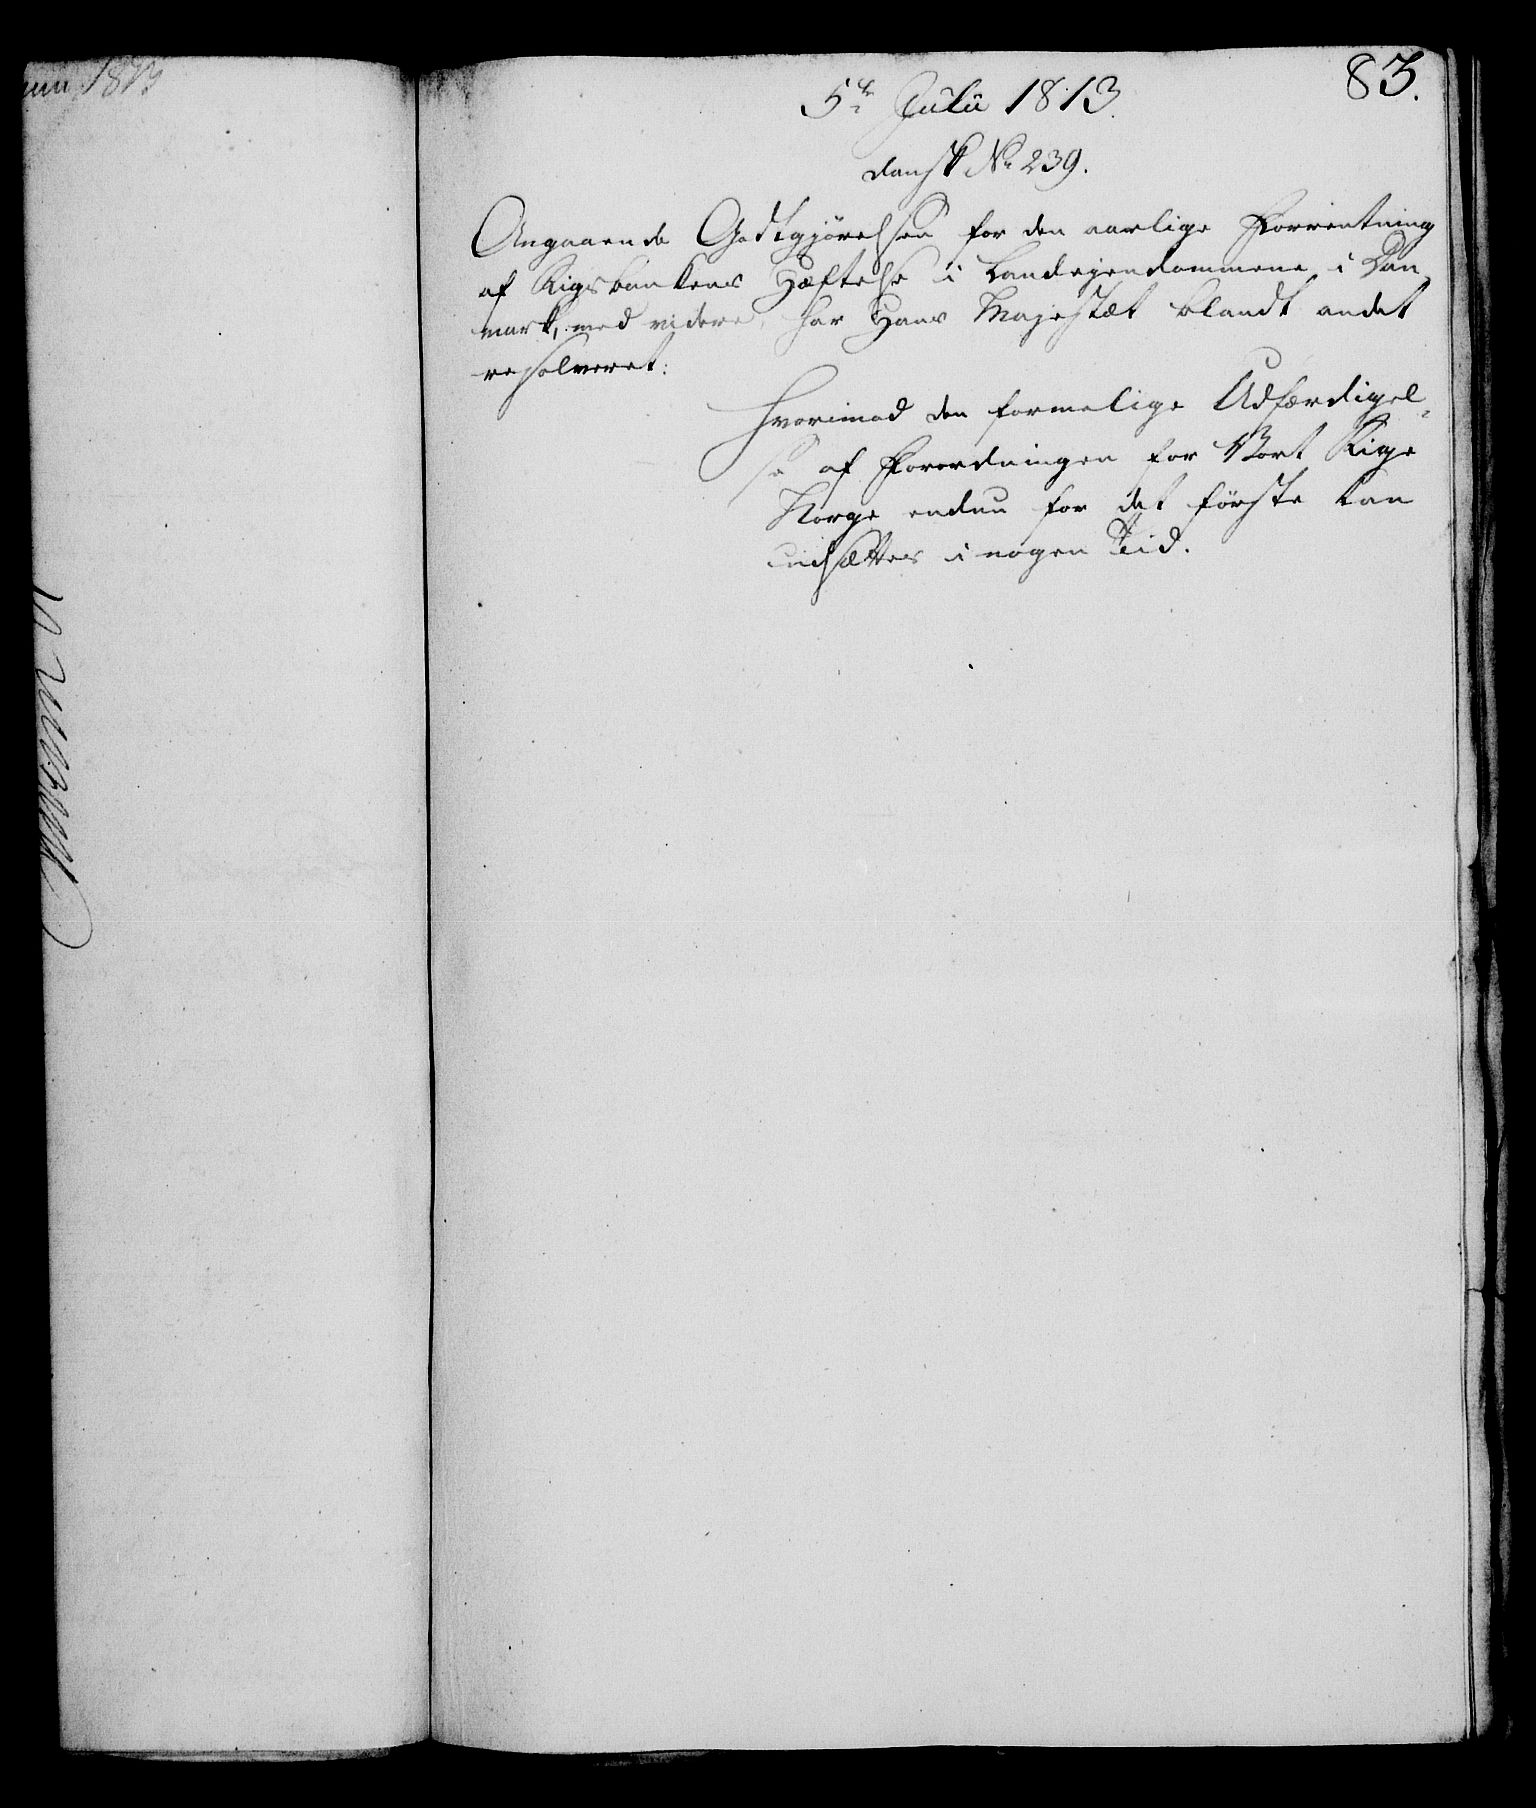 1813
83.
5te Julii 1813.
dansk No 239.
Angaaende Godtgjørelsen for den aarlige Forrentning
af Rigsbankens Hæftelse i Landejendommene i Dan-
mark, med videre, har Hans Majestæt blandt andet
resolveret:
Hvorimod den formelige Udfærdigel-
se af Forordningen for Vort Rige
Norge endnu for det første kan
udsættes i nogen Tid.